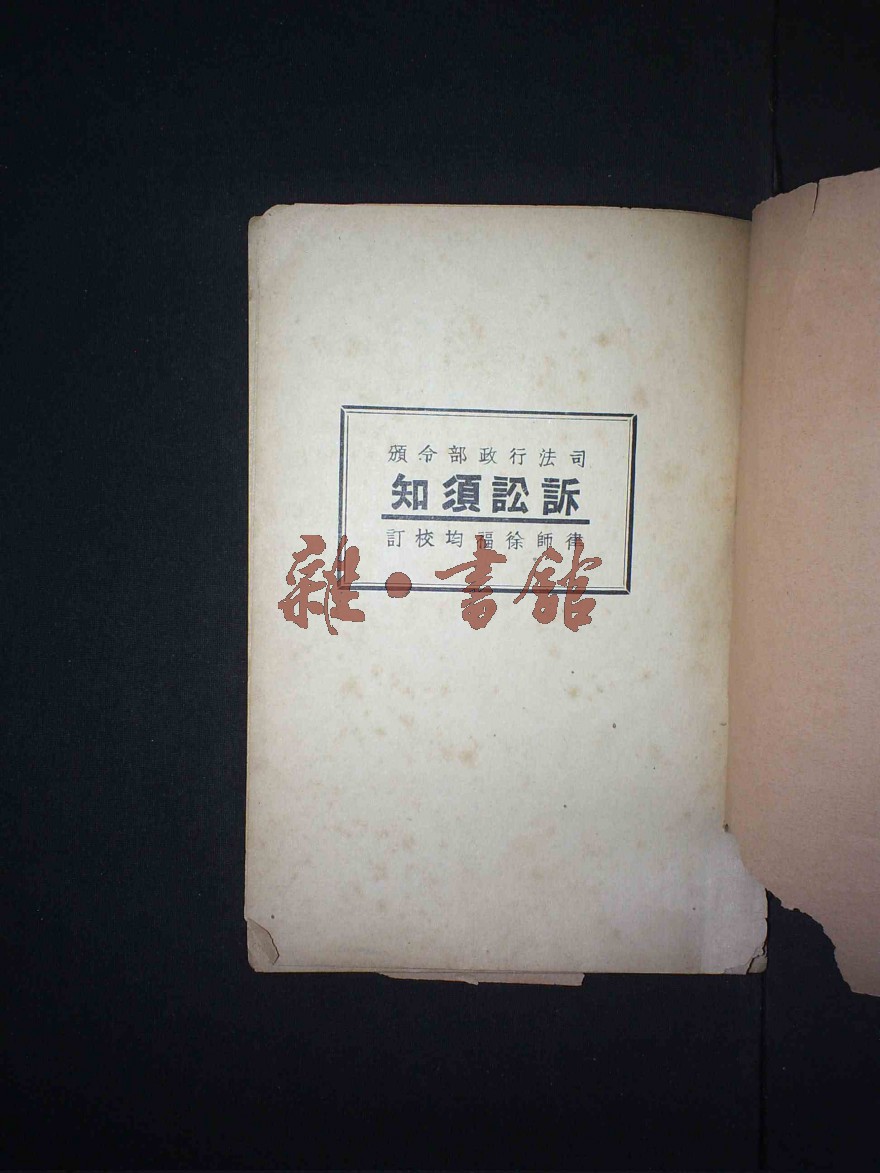 司法行政部令頒
訴訟須知
律師徐福均校訂
雜·書館